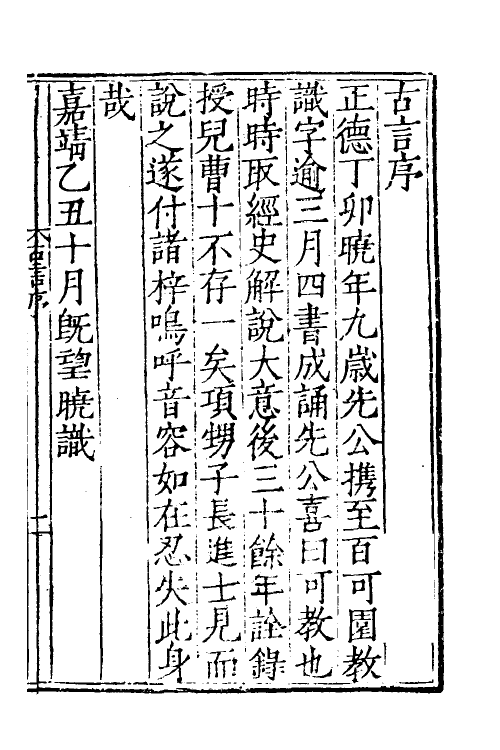 古言序
正德丁卯曉年九歲先公攜至百可園教
識字逾三月四書成誦先公喜曰可教也
時時取經史解說大意後三十餘年詮錄
授兒曹十不存一矣項甥子長進士見而
說之遂付諸梓嗚呼音容如在忍失此身
哉
嘉靖乙丑十月既望曉識
古言序
二